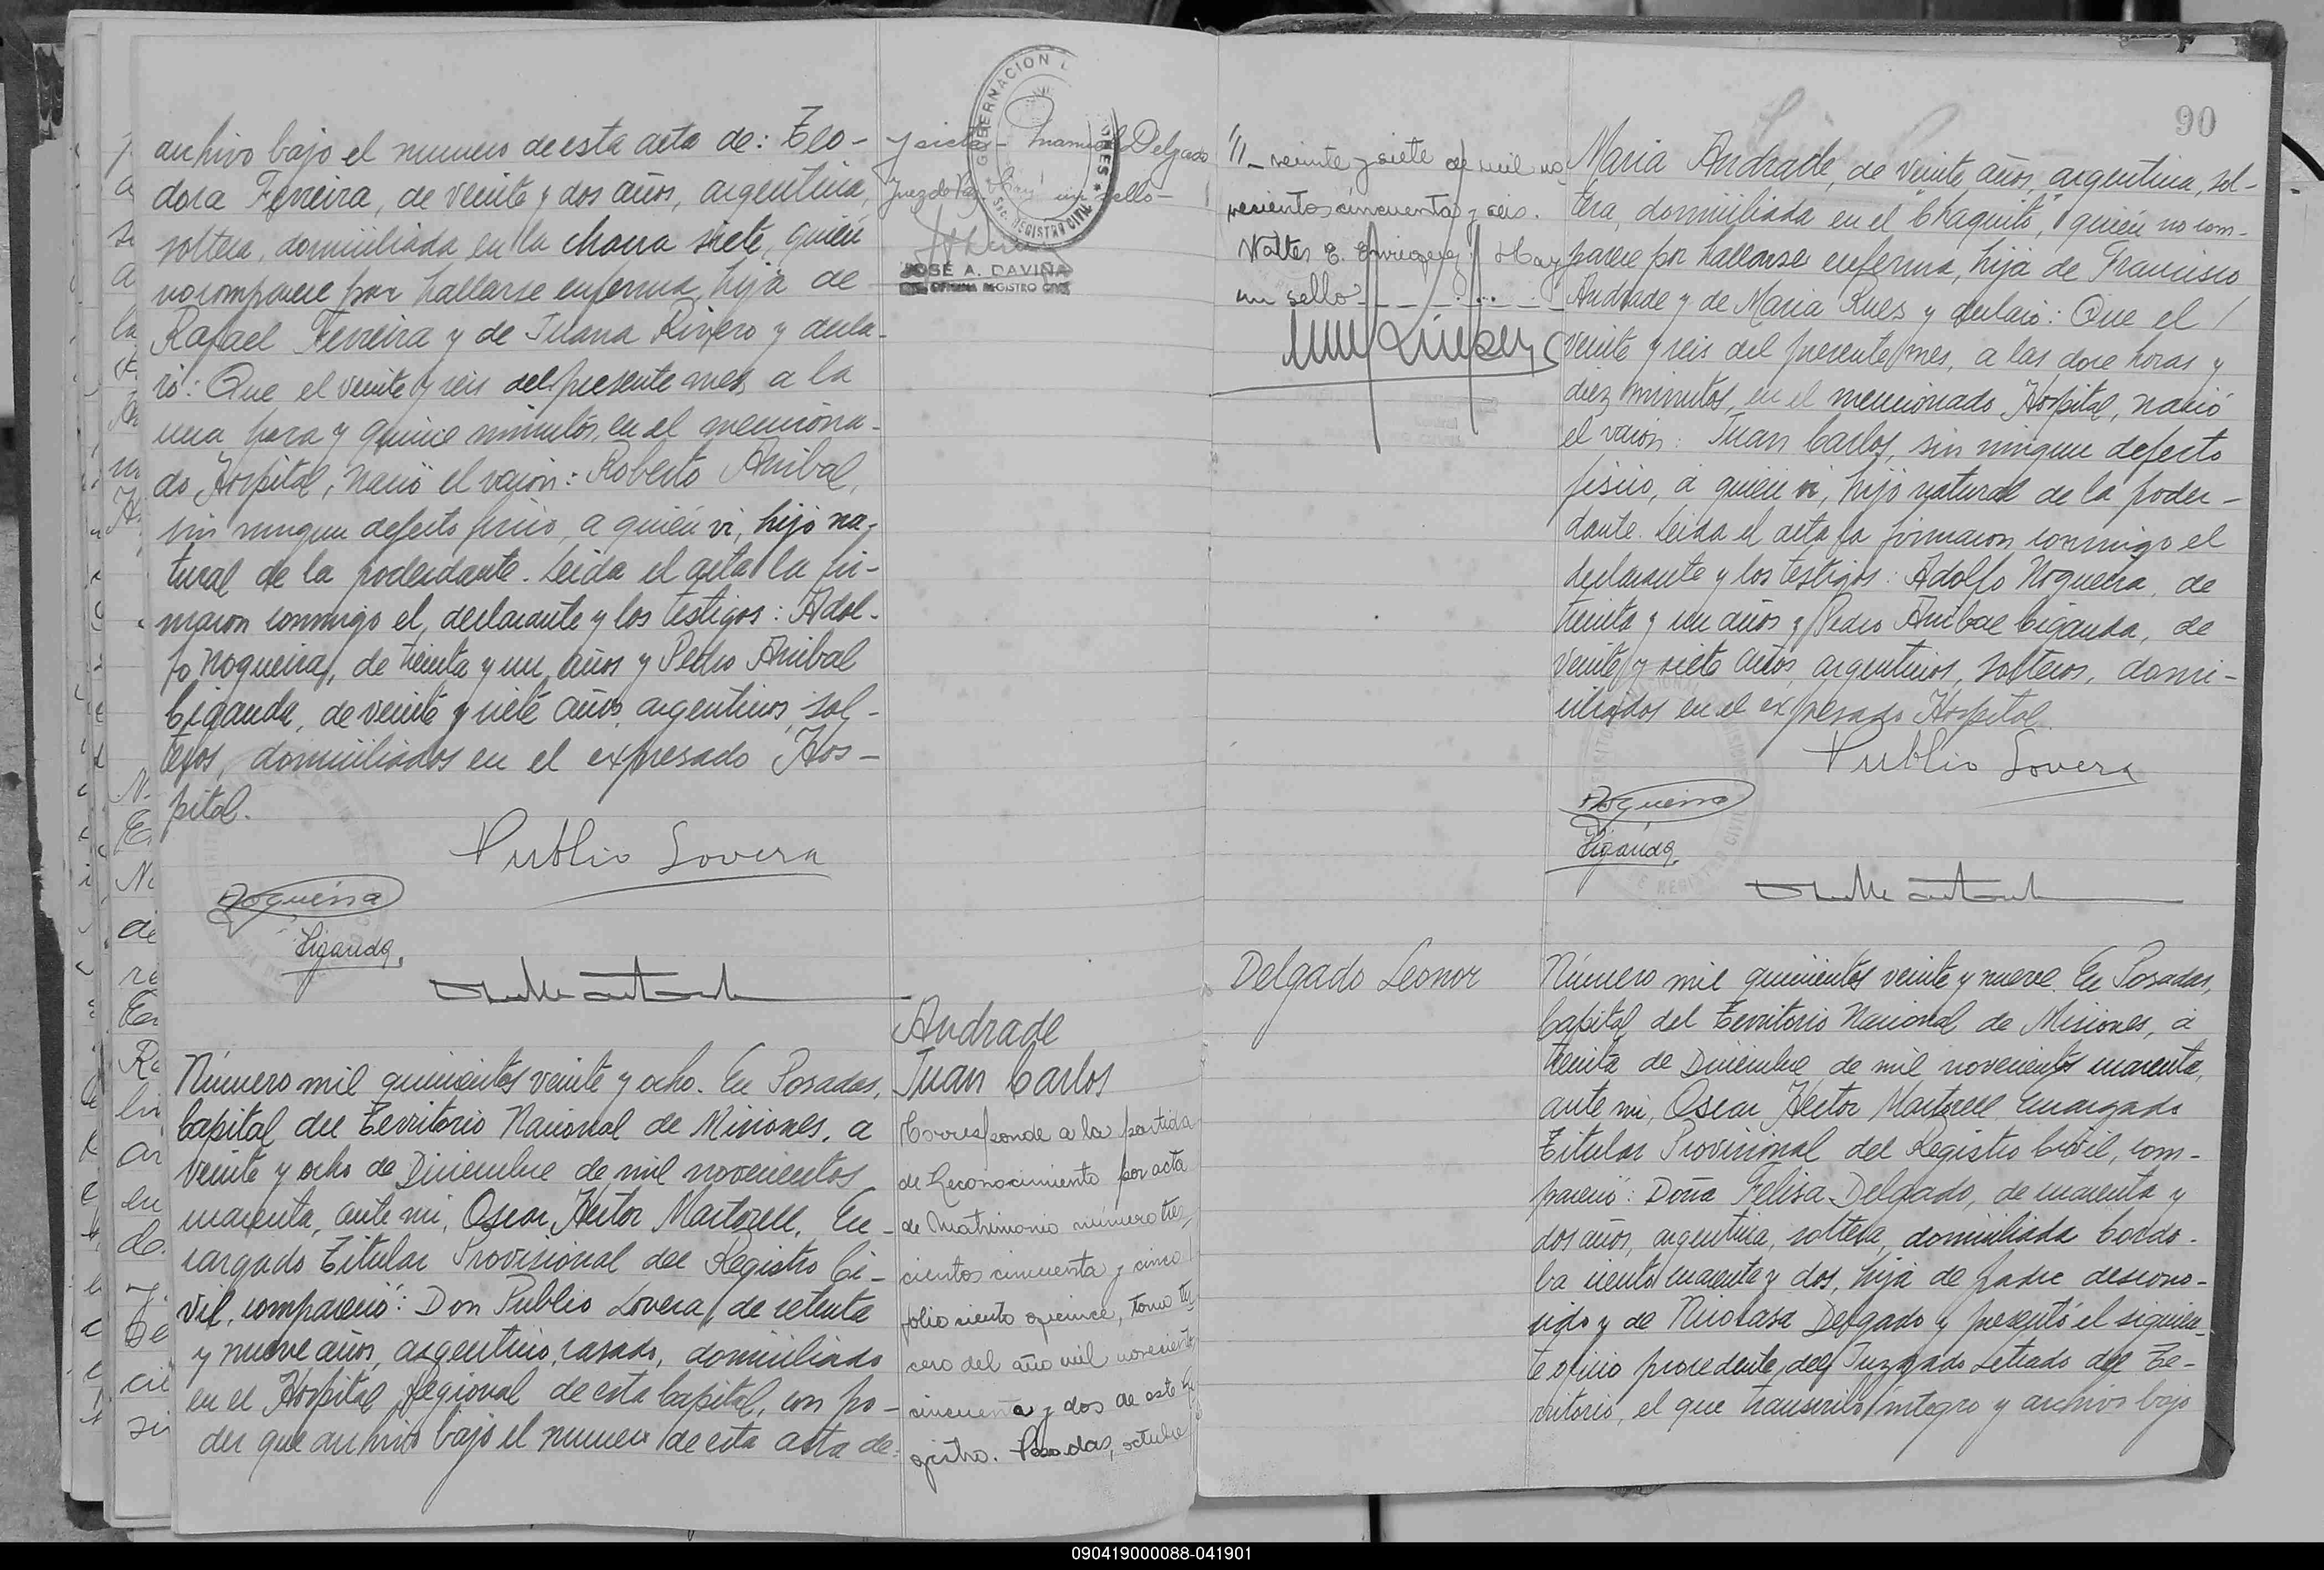 archivo bajo el numero de esta acta de: Teo-
dora Ferreira, de veinte y dos años, argentina,
soltera, domiciliada en la chacra siete, quién
no comparece por hallarse enferma, hija de
Rafael Ferreira y de Juana Rivero y decla-
ró: Que el veinte y seis del presente mes, a la
una hora y quince minutos, en el menciona-
do Hospital, nació el varón: Roberto Anibal,
sin ningun defecto fisico, a quién vi, hijo na-
tural de la poderdante. Leida el acta la fir-
maron conmigo el declarante y los testigos: Adol-
fo Nogueira, de treinta y un años y Pedro Anibal
Ciganda, de veinte y siete años, argentinos, sol-
teros, domiciliados en el expresado Hos-
pital.
Publio Lovera
Nogueira
Ciganda
y siete - Manuel Delgado
Juez de Paz. Hay un sello-
GOBERNACION
REGISTRO CIVIL
JOSÉ A. DAVIÑA
OFICINA REGISTRO CIVIL
Andrade
Juan Carlos
Corresponde a la partida
de Reconocimiento por acta
de Matrimonio número tres
cientos cincuenta y cinco
folio ciento quince, tomo ter
cero del año mil novecientos
cincuenta y dos de este Re
gistro. Posadas, octubre
Número mil quinientos veinte y ocho. En Posadas,
Capital del Territorio Nacional de Misiones, a
veinte y ocho de Diciembre de mil novecientos
cuarenta, ante mi, Oscar Hector Martorell, En-
cargado Titular Provisional del Registro Ci-
vil, compareció: Don Publio Lovera, de setenta
y nueve años, argentino, casado, domiciliado
en el Hospital Regional de esta Capital, con po-
der que archivo bajo el numero de esta acta de:
90
"/- veinte y siete de mil no-
vecientos cincuenta y seis.
Walter E. Enriquez Hay
un sello
Maria Andrade, de veinte años, argentina, sol-
tera, domiciliada en el "Chaquito", quién no com-
parece por hallarse enferma, hija de Francisco
Andrade y de Maria Rues y declaró: Que el
veinte y seis del presente mes, a las doce horas y
diez minutos, en el mencionado Hospital, nació
el varón: Juan Carlos, sin ningun defecto
fisico, a quién vi, hijo natural de la poder-
dante. Leida el acta la firmaron conmigo el
declarante y los testigos: Adolfo Nogueira, de
treinta y un años y Pedro Anibal Ciganda, de
veinte y siete años, argentinos, solteros, domi-
ciliados en el expresado Hospital.
Publio Lovera
Nogueira
Ciganda
Delgado Leonor
Número mil quinientos veinte y nueve. En Posadas,
Capital del Territorio Nacional de Misiones, a
treinta de Diciembre de mil novecientos cuarenta,
ante mi, Oscar Hector Martorell, Encargado
Titular Provisional del Registro Civil, com-
pareció: Doña Felisa Delgado, de cuarenta y
dos años, argentina, soltera, domiciliada Cordo-
ba ciento cuarenta y dos, hija de padre descono-
cido y de Nicolasa Delgado y presentó el siguien-
te oficio procedente del Juzgado Letrado del Te-
rritorio, el que transcribo integro y archivo bajo
090419000088-041901